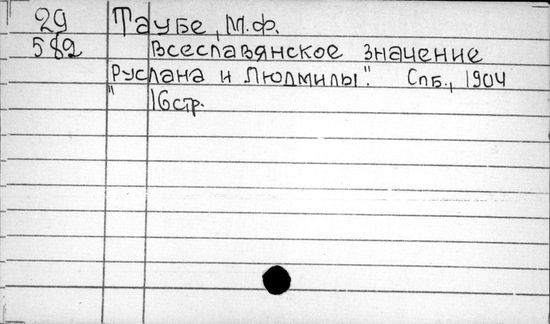 29 Таубе, М.Ф.
582 Всеславянское значение
"Руслана и Людмилы". Спб., 1904
16стр.